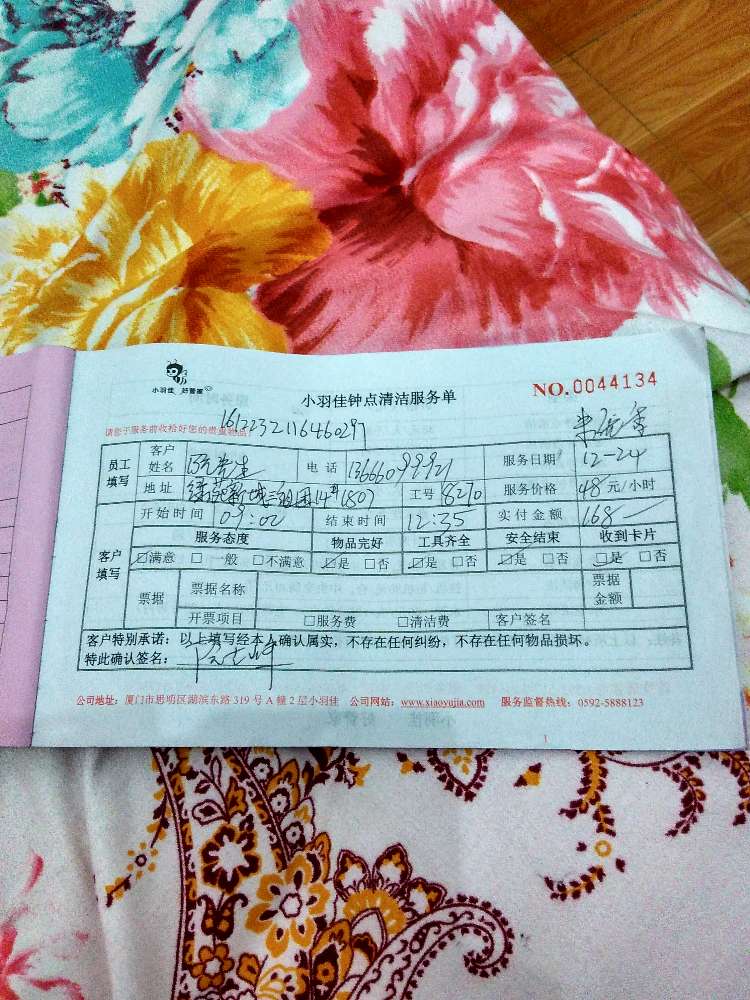 小羽佳 好管家
小羽佳钟点清洁服务单
NO.0044134
请您于服务前收拾好您的贵重物品!
1612232116460297
员工填写 客户姓名 先生 电话 13666099921 服务日期 12-24
地址 14 1807 工号 8270 服务价格 48元/小时
客户填写 开始时间 09:02 结束时间 12:35 实付金额 168
服务态度 物品完好 工具齐全 安全结束 收到卡片
☑满意 □一般 □不满意 ☑是 □否 ☑是 □否 ☑是 □否 ☑是 □否
票据 票据名称 票据金额
开票项目 □服务费 □清洁费 客户签名
客户特别承诺:以上填写经本人确认属实,不存在任何纠纷,不存在任何物品损坏。
特此确认签名:
公司地址:厦门市思明区湖滨东路319号A幢2层小羽佳 公司网站:www.xiaoyujia.com 服务监督热线:0592-5888123
1